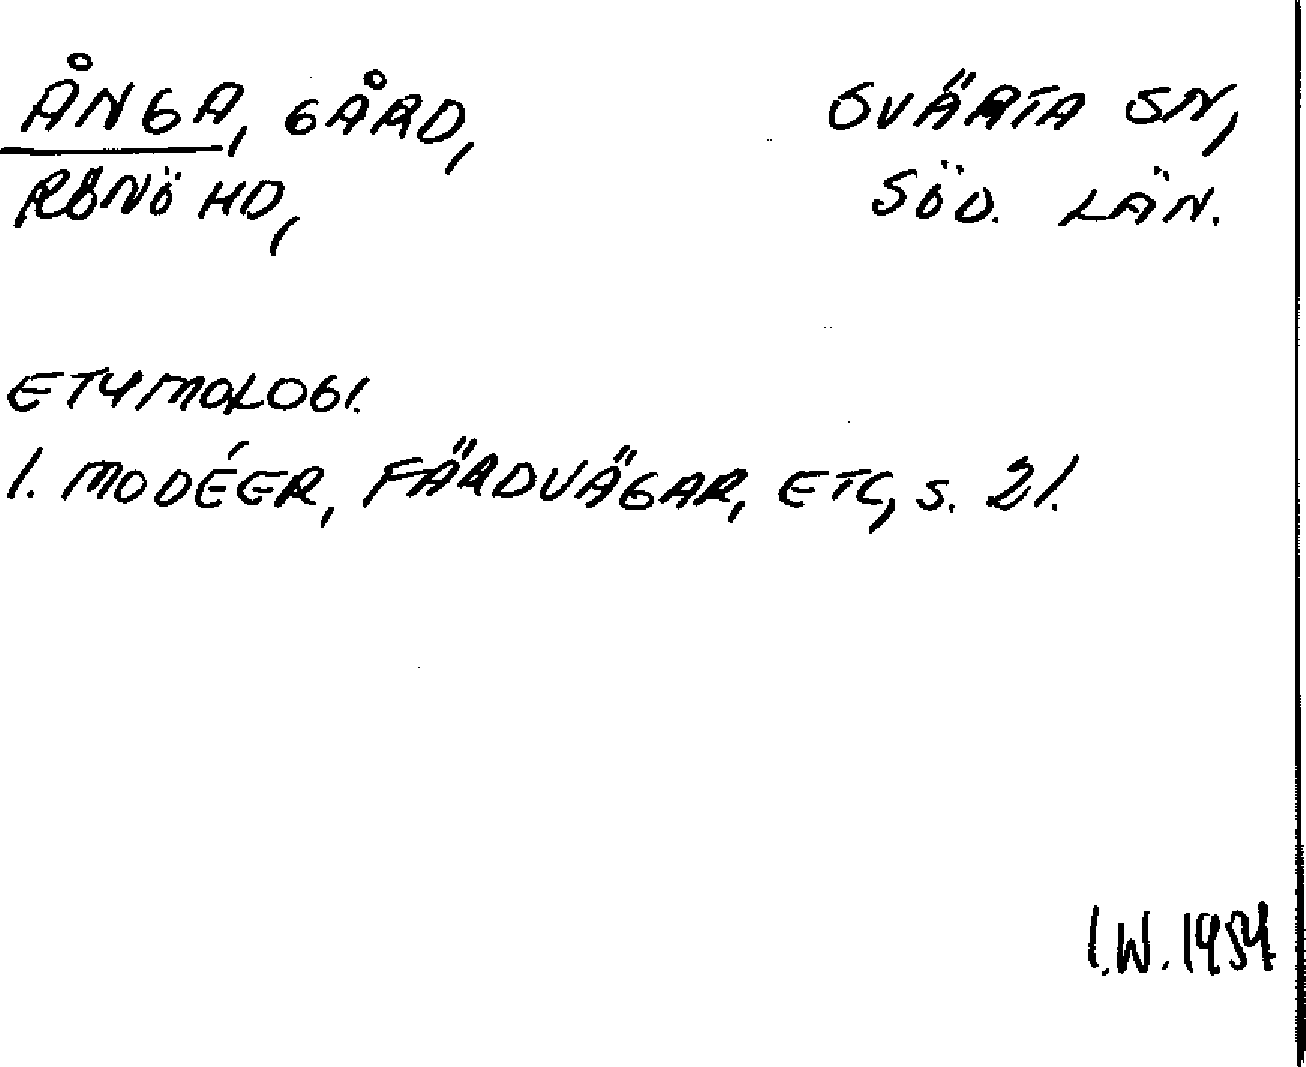 ÅNGA, GÅRD, SVÄRTA SN,
RÖNÖ HD, SÖD. LÄN.
ETYMOLOGI.
I. MODÉER, FÄRDVÄGAR, ETC, S. 21.
I.W. 1954